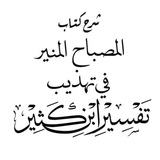 شرح كتاب
المصباح المنير
في تهذيب
تفسير ابن كثير